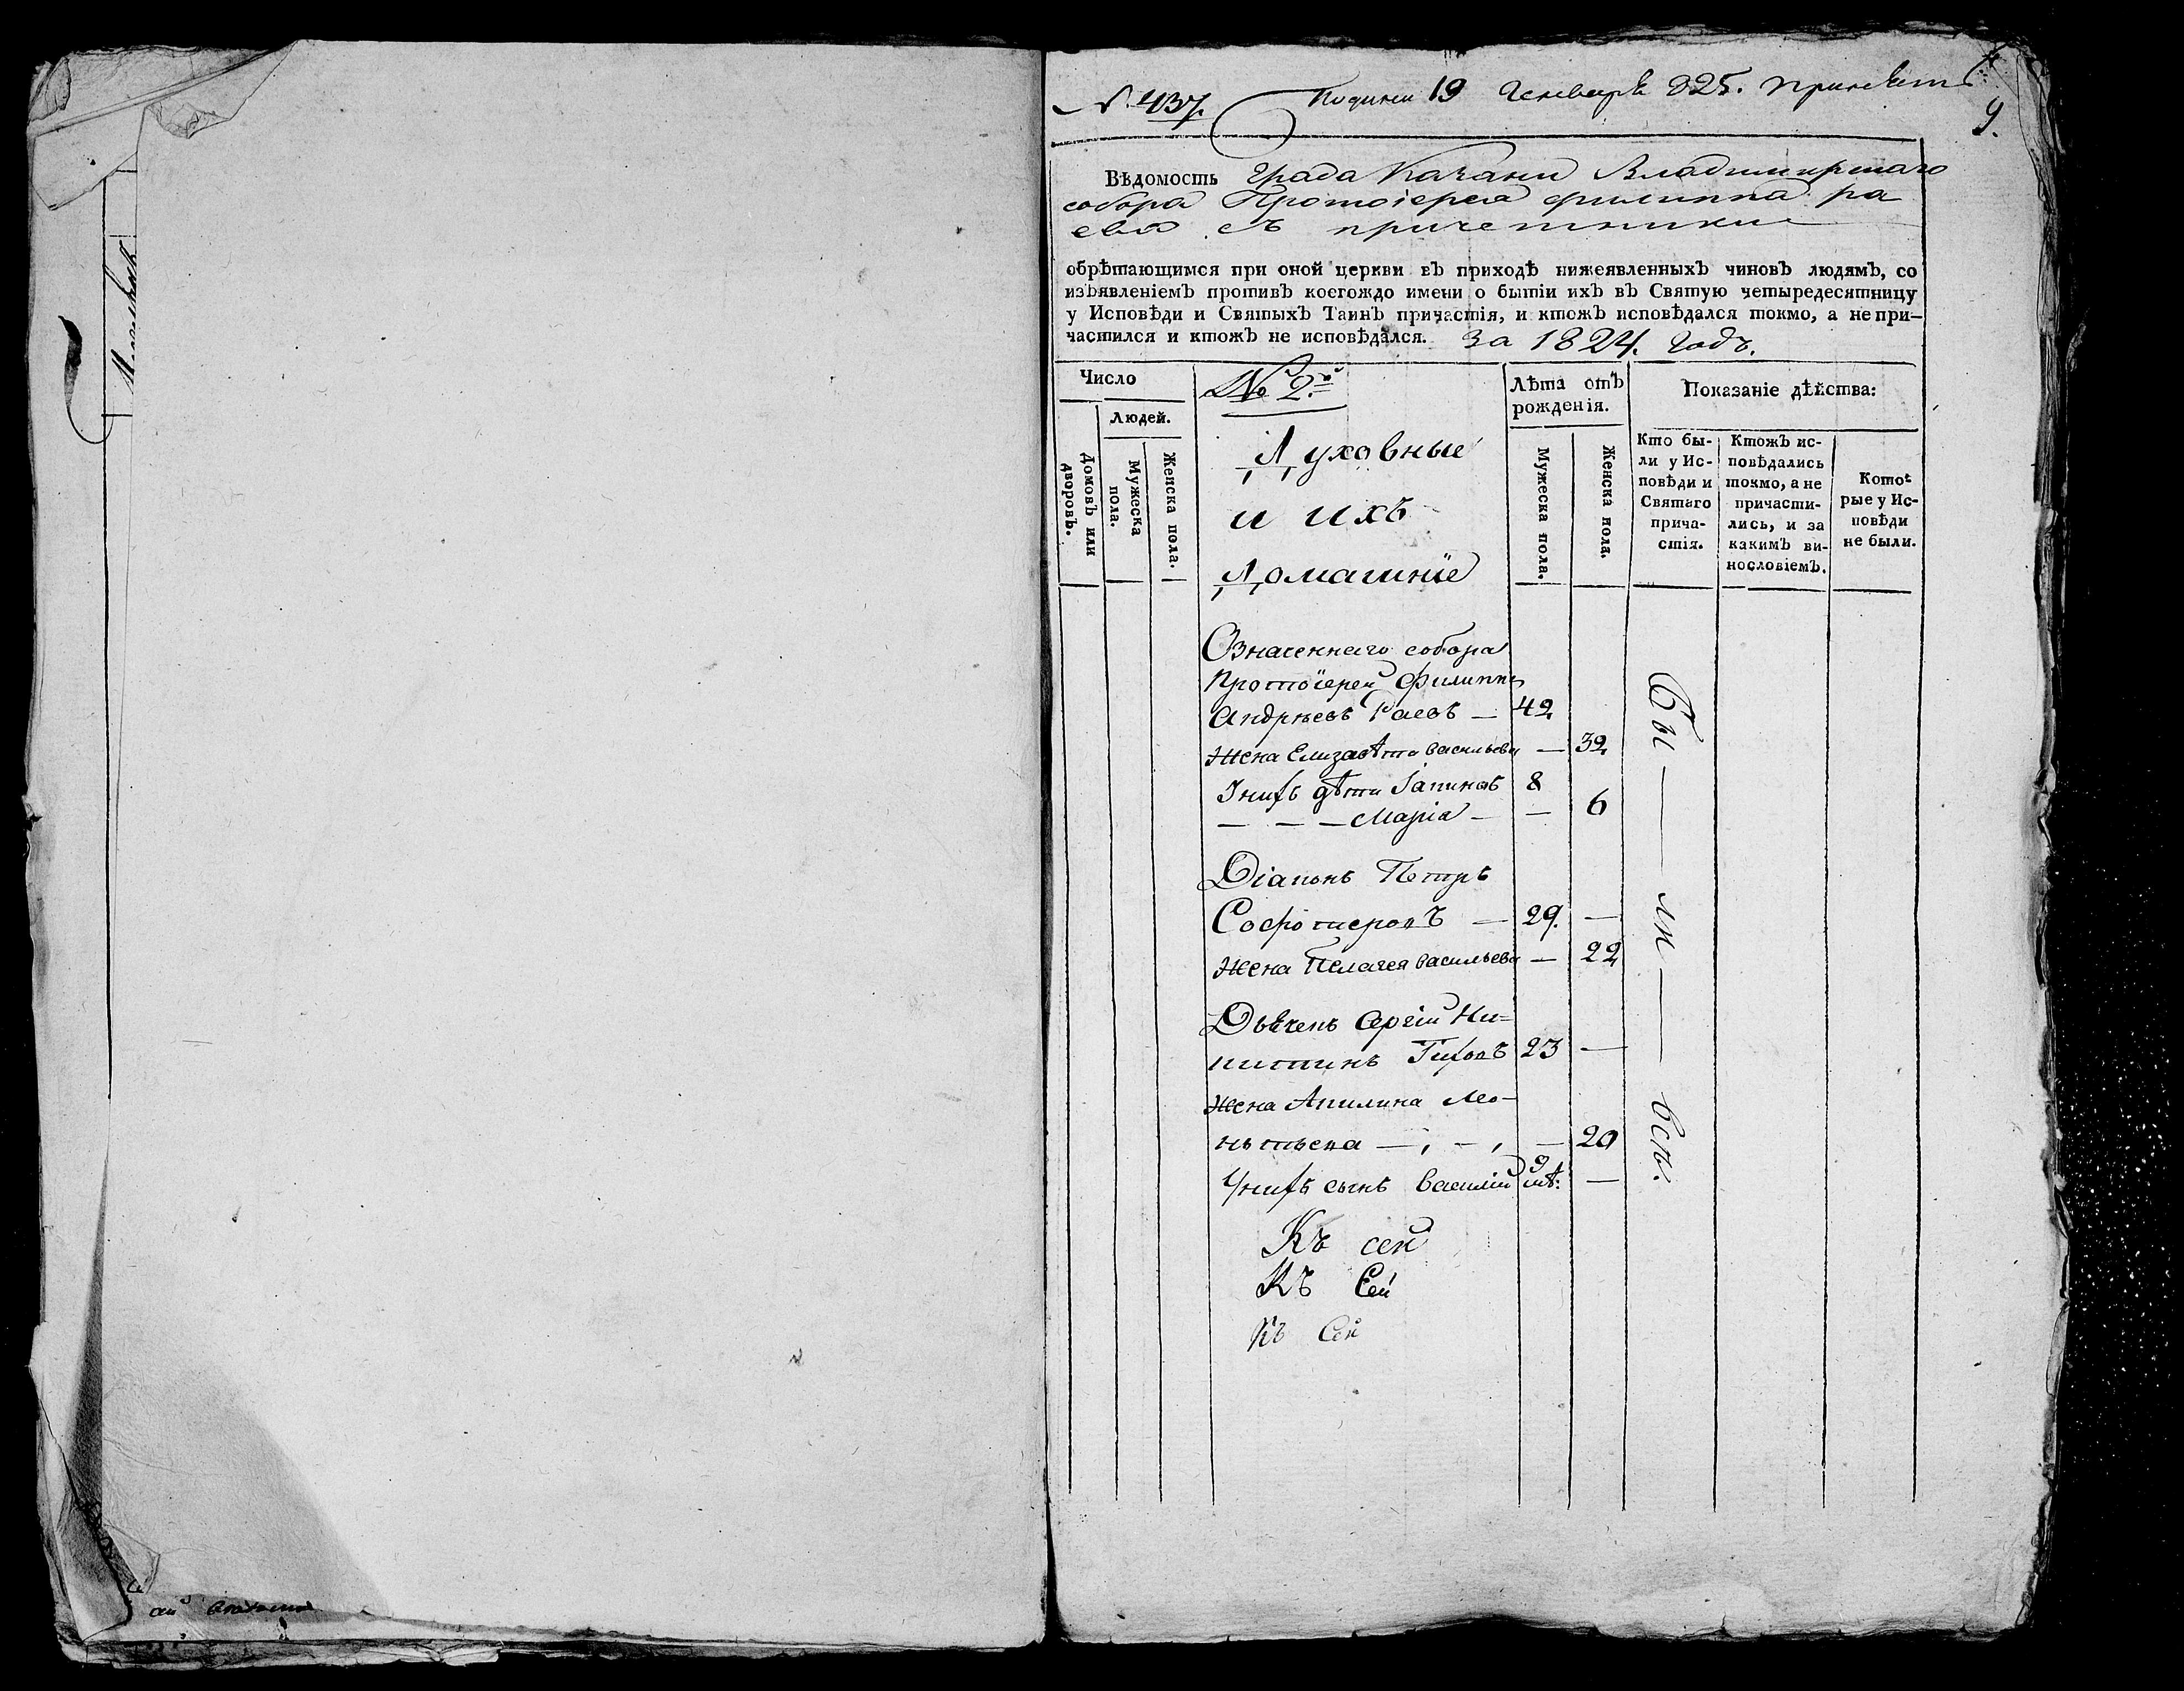 № 437.
Подано 19 Генваря 825.
9.
Вѣдомость Града Казани Владимирскаго
собора Протоіерея филиппа ра
ева съ причетники
обрѣтающимся при оной церкви въ приходѣ нижеявленныхъ чиновъ людямъ, со
изъявленіемъ противъ коегождо имени о бытіи ихъ въ Святую четыредесятницу
у Исповѣди и Святыхъ Таинъ причастія, и ктожъ исповѣдался токмо, а не при-
частился и ктожъ не исповѣдался. За 1824. Годъ.
Число
Людей.
Домовъ или дворовъ.
Мужеска пола.
Женска пола.
№ 2й
Лѣта отъ
рожденія.
Мужеска пола.
Женска пола.
Показаніе дѣйства:
Кто бы-
ли у Ис-
повѣди и
Святаго
прича-
стія.
Ктожъ ис-
повѣдались
токмо, а не
причасти-
лись, и за
какимъ ви-
нословіемъ.
Кото-
рые у Ис-
повѣди
не были.
Духовные
и ихъ
Домашніе
Означеннаго собора
Протоіерей Филиппъ
Андрѣевъ Раевъ — 42
Жена Елизавѣта Васильева — 32
Ихъ дѣти 8
— — — Марія — — 6
Діаконъ Петръ
— 29. —
Жена Пелагея Васильева — 22
Дьячекъ Сергій Ни-
китинъ 23 —
Жена Акилина Лео-
нтьева — , — , — 20
У нихъ сынъ Василій 9 мѣ: —
Бы — ли — всѣ.
Къ сей
Къ Сей
Къ Сей